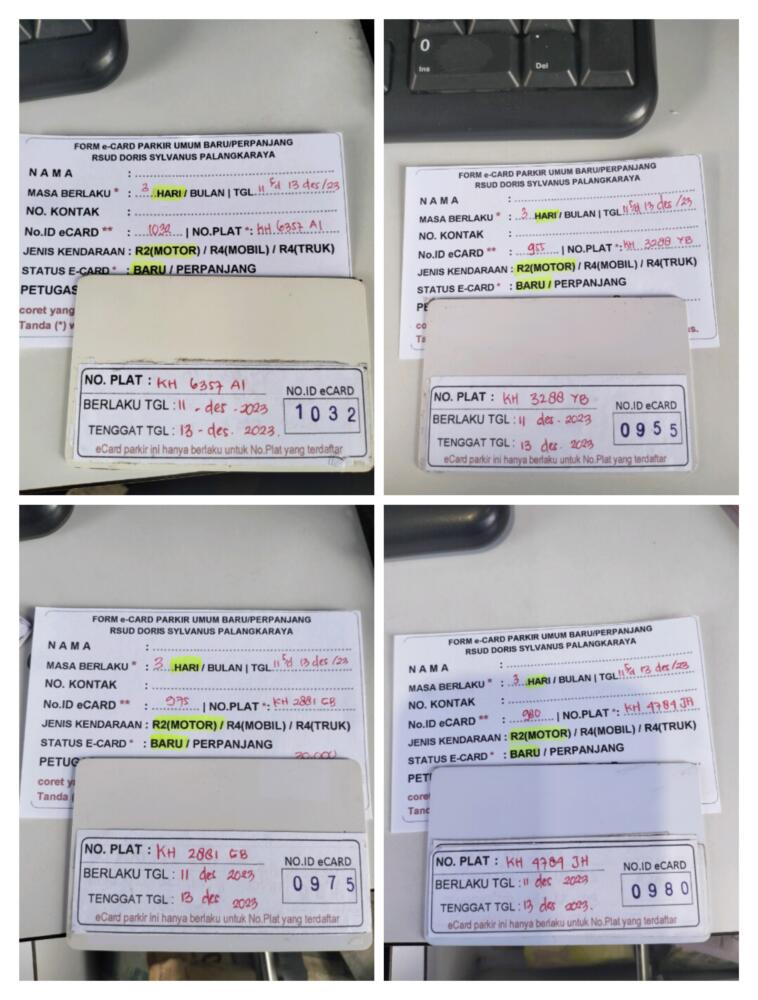 FORM e-CARD PARKIR UMUM BARU/PERPANJANG
RSUD DORIS SYLVANUS PALANGKARAYA
NAMA :
MASA BERLAKU * : 3 HARI / BULAN | TGL 11 s/d 13 des/23
NO. KONTAK :
No.ID eCARD ** : 1032 | NO.PLAT *: KH 6357 AI
JENIS KENDARAAN : R2(MOTOR) / R4(MOBIL) / R4(TRUK)
STATUS E-CARD * : BARU / PERPANJANG
PETUGAS
coret yang
Tanda (*) w
NO. PLAT : KH 6357 AI
BERLAKU TGL : 11 - des - 2023
TENGGAT TGL : 13 - des - 2023.
NO.ID eCARD
1032
eCard parkir ini hanya berlaku untuk No.Plat yang terdaftar
0
Ins
.
Del
FORM e-CARD PARKIR UMUM BARU/PERPANJANG
RSUD DORIS SYLVANUS PALANGKARAYA
NAMA :
MASA BERLAKU * : 3 HARI / BULAN | TGL 11 s/d 13 des/23
NO. KONTAK :
No.ID eCARD ** : 955 | NO.PLAT *: KH 3288 YB
JENIS KENDARAAN : R2(MOTOR) / R4(MOBIL) / R4(TRUK)
STATUS E-CARD * : BARU / PERPANJANG
PE
co
Ta
s.
NO. PLAT : KH 3288 YB
BERLAKU TGL : 11 des 2023
TENGGAT TGL : 13 des. 2023
NO.ID eCARD
0955
eCard parkir ini hanya berlaku untuk No.Plat yang terdaftar
FORM e-CARD PARKIR UMUM BARU/PERPANJANG
RSUD DORIS SYLVANUS PALANGKARAYA
NAMA :
MASA BERLAKU * : 3 HARI / BULAN | TGL 11 s/d 13 des/23
NO. KONTAK :
No.ID eCARD ** : 975 | NO.PLAT *: KH 2881 GB
JENIS KENDARAAN : R2(MOTOR) / R4(MOBIL) / R4(TRUK)
STATUS E-CARD * : BARU / PERPANJANG
PETUG
coret ya
Tanda (
NO. PLAT : KH 2881 GB
BERLAKU TGL : 11 des 2023
TENGGAT TGL : 13 des 2023
NO.ID eCARD
0975
eCard parkir ini hanya berlaku untuk No.Plat yang terdaftar
FORM e-CARD PARKIR UMUM BARU/PERPANJANG
RSUD DORIS SYLVANUS PALANGKARAYA
NAMA :
MASA BERLAKU * : 3 HARI / BULAN | TGL 11 s/d 13 des/23
NO. KONTAK :
No.ID eCARD ** : 980 | NO.PLAT *: KH 4784 JH
JENIS KENDARAAN : R2(MOTOR) / R4(MOBIL) / R4(TRUK)
STATUS E-CARD * : BARU / PERPANJANG
PET
core
Tand
NO. PLAT : KH 4784 JH
BERLAKU TGL : 11 des 2023
TENGGAT TGL : 13 des 2023.
NO.ID eCARD
0980
eCard parkir ini hanya berlaku untuk No.Plat yang terdaftar